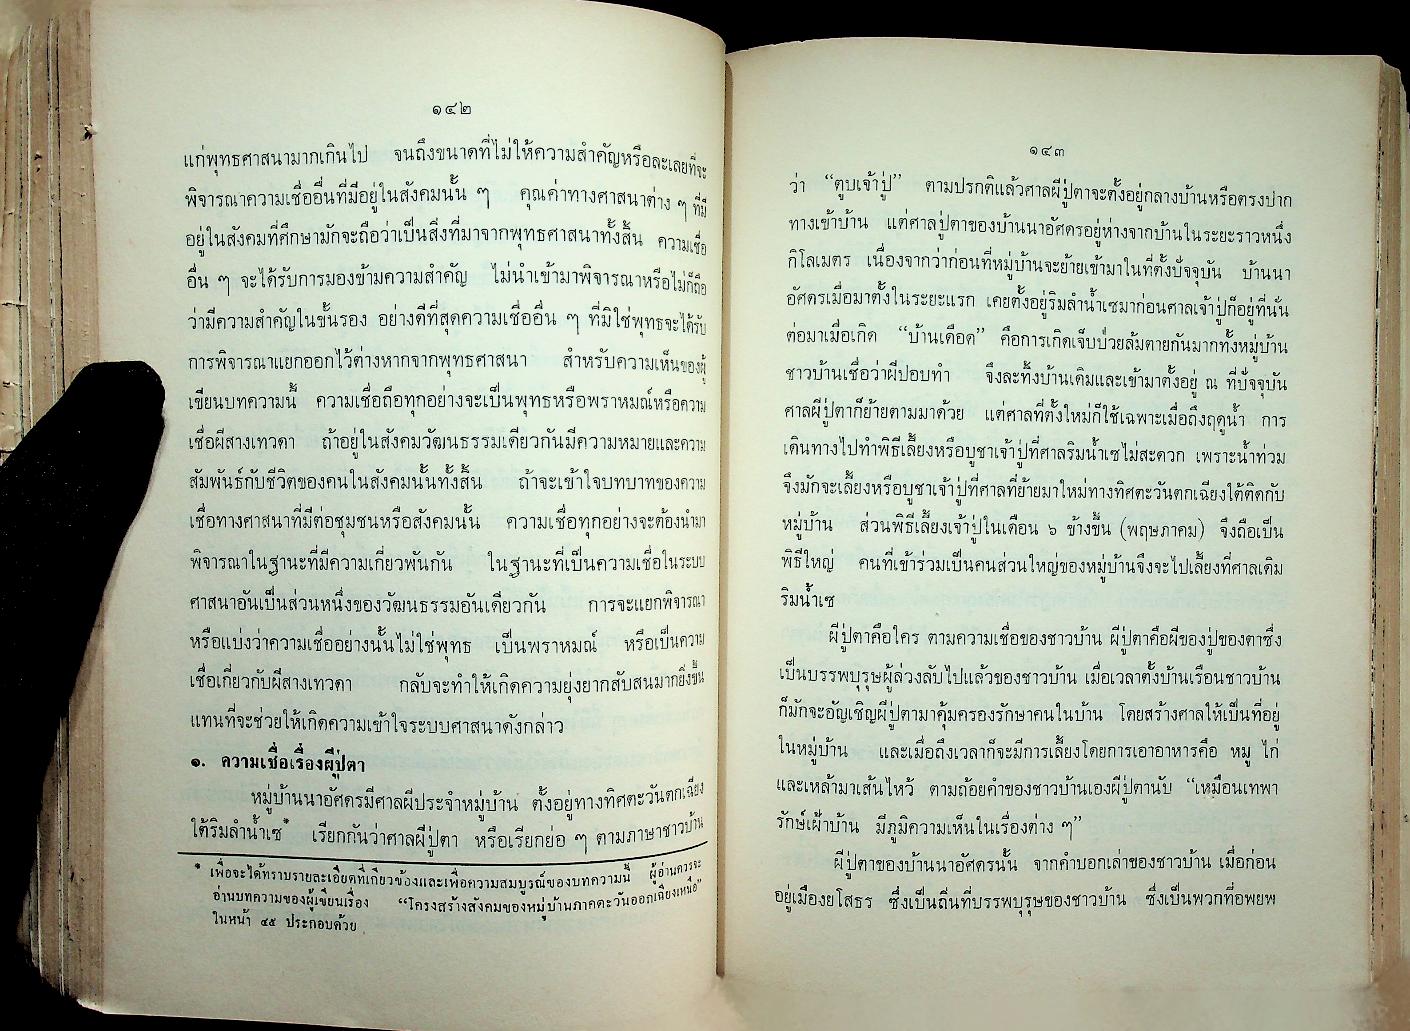 ๑๔๒
แก่พุทธศาสนามากเกินไป จนถึงขนาดที่ไม่ให้ความสำคัญหรือละเลยที่จะ
พิจารณาความเชื่ออื่นที่มีอยู่ในสังคมนั้น ๆ คุณค่าทางศาสนาต่าง ๆ ที่มี
อยู่ในสังคมที่ศึกษามักจะถือว่าเป็นสิ่งที่มาจากพุทธศาสนาทั้งสิ้น ความเชื่อ
อื่น ๆ จะได้รับการมองข้ามความสำคัญ ไม่นำเข้ามาพิจารณาหรือไม่ก็ถือ
ว่ามีความสำคัญในขั้นรอง อย่างดีที่สุดความเชื่ออื่น ๆ ที่มิใช่พุทธจะได้รับ
การพิจารณาแยกออกไว้ต่างหากจากพุทธศาสนา สำหรับความเห็นของผู้
เขียนบทความนี้ ความเชื่อถือทุกอย่างจะเป็นพุทธหรือพราหมณ์หรือความ
เชื่อผีสางเทวดา ถ้าอยู่ในสังคมวัฒนธรรมเดียวกันมีความหมายและความ
สัมพันธ์กับชีวิตของคนในสังคมนั้นทั้งสิ้น ถ้าจะเข้าใจบทบาทของความ
เชื่อทางศาสนาที่มีต่อชุมชนหรือสังคมนั้น ความเชื่อทุกอย่างจะต้องนำมา
พิจารณาในฐานะที่มีความเกี่ยวพันกัน ในฐานะที่เป็นความเชื่อในระบบ
ศาสนาอันเป็นส่วนหนึ่งของวัฒนธรรมอันเดียวกัน การจะแยกพิจารณา
หรือแบ่งว่าความเชื่ออย่างนั้นไม่ใช่พุทธ เป็นพราหมณ์ หรือเป็นความ
เชื่อเกี่ยวกับผีสางเทวดา กลับจะทำให้เกิดความยุ่งยากสับสนมากยิ่งขึ้น
แทนที่จะช่วยให้เกิดความเข้าใจระบบศาสนาดังกล่าว
๑. ความเชื่อเรื่องผีปู่ตา
หมู่บ้านนาอัศครมีศาลผีประจำหมู่บ้าน ตั้งอยู่ทางทิศตะวันตกเฉียง
ใต้ริมลำน้ำเซ* เรียกกันว่าศาลผีปู่ตา หรือเรียกย่อ ๆ ตามภาษาชาวบ้าน
* เพื่อจะได้ทราบรายละเอียดที่เกี่ยวข้องและเพื่อความสมบูรณ์ของบทความนี้ ผู้อ่านควรจะ
อ่านบทความของผู้เขียนเรื่อง “โครงสร้างสังคมของหมู่บ้านภาคตะวันออกเฉียงเหนือ”
ในหน้า ๔๕ ประกอบด้วย
๑๔๓
ว่า “ตูบเจ้าปู่” ตามปรกติแล้วศาลผีปู่ตาจะตั้งอยู่กลางบ้านหรือตรงปาก
ทางเข้าบ้าน แต่ศาลปู่ตาของบ้านนาอัศครอยู่ห่างจากบ้านในระยะราวหนึ่ง
กิโลเมตร เนื่องจากว่าก่อนที่หมู่บ้านจะย้ายเข้ามาในที่ตั้งปัจจุบัน บ้านนา
อัศครเมื่อมาตั้งในระยะแรก เคยตั้งอยู่ริมลำน้ำเซมาก่อนศาลเจ้าปู่ก็อยู่ที่นั่น
ต่อมาเมื่อเกิด “บ้านเดือด” คือการเกิดเจ็บป่วยล้มตายกันมากทั้งหมู่บ้าน
ชาวบ้านเชื่อว่าผีปอบทำ จึงละทิ้งบ้านเดิมและเข้ามาตั้งอยู่ ณ ที่ปัจจุบัน
ศาลผีปู่ตาก็ย้ายตามมาด้วย แต่ศาลที่ตั้งใหม่ก็ใช้เฉพาะเมื่อถึงฤดูน้ำ การ
เดินทางไปทำพิธีเลี้ยงหรือบูชาเจ้าปู่ที่ศาลริมน้ำเซไม่สะดวก เพราะน้ำท่วม
จึงมักจะเลี้ยงหรือบูชาเจ้าปู่ที่ศาลที่ย้ายมาใหม่ทางทิศตะวันตกเฉียงใต้ติดกับ
หมู่บ้าน ส่วนพิธีเลี้ยงเจ้าปู่ในเดือน ๖ ข้างขึ้น (พฤษภาคม) จึงถือเป็น
พิธีใหญ่ คนที่เข้าร่วมเป็นคนส่วนใหญ่ของหมู่บ้านจึงจะไปเลี้ยงที่ศาลเดิม
ริมน้ำเซ
ผีปู่ตาคือใคร ตามความเชื่อของชาวบ้าน ผีปู่ตาคือผีของปู่ของตาซึ่ง
เป็นบรรพบุรุษผู้ล่วงลับไปแล้วของชาวบ้าน เมื่อเวลาตั้งบ้านเรือนชาวบ้าน
ก็มักจะอัญเชิญผีปู่ตามาคุ้มครองรักษาคนในบ้าน โดยสร้างศาลให้เป็นที่อยู่
ในหมู่บ้าน และเมื่อถึงเวลาก็จะมีการเลี้ยงโดยการเอาอาหารคือ หมู ไก่
และเหล้ามาเส้นไหว้ ตามถ้อยคำของชาวบ้านเองผีปู่ตานับ “เหมือนเทพา
รักษ์เฝ้าบ้าน มีภูมิความเห็นในเรื่องต่าง ๆ”
ผีปู่ตาของบ้านนาอัศครนั้น จากคำบอกเล่าของชาวบ้าน เมื่อก่อน
อยู่เมืองยโสธร ซึ่งเป็นถิ่นที่บรรพบุรุษของชาวบ้าน ซึ่งเป็นพวกที่อพยพ